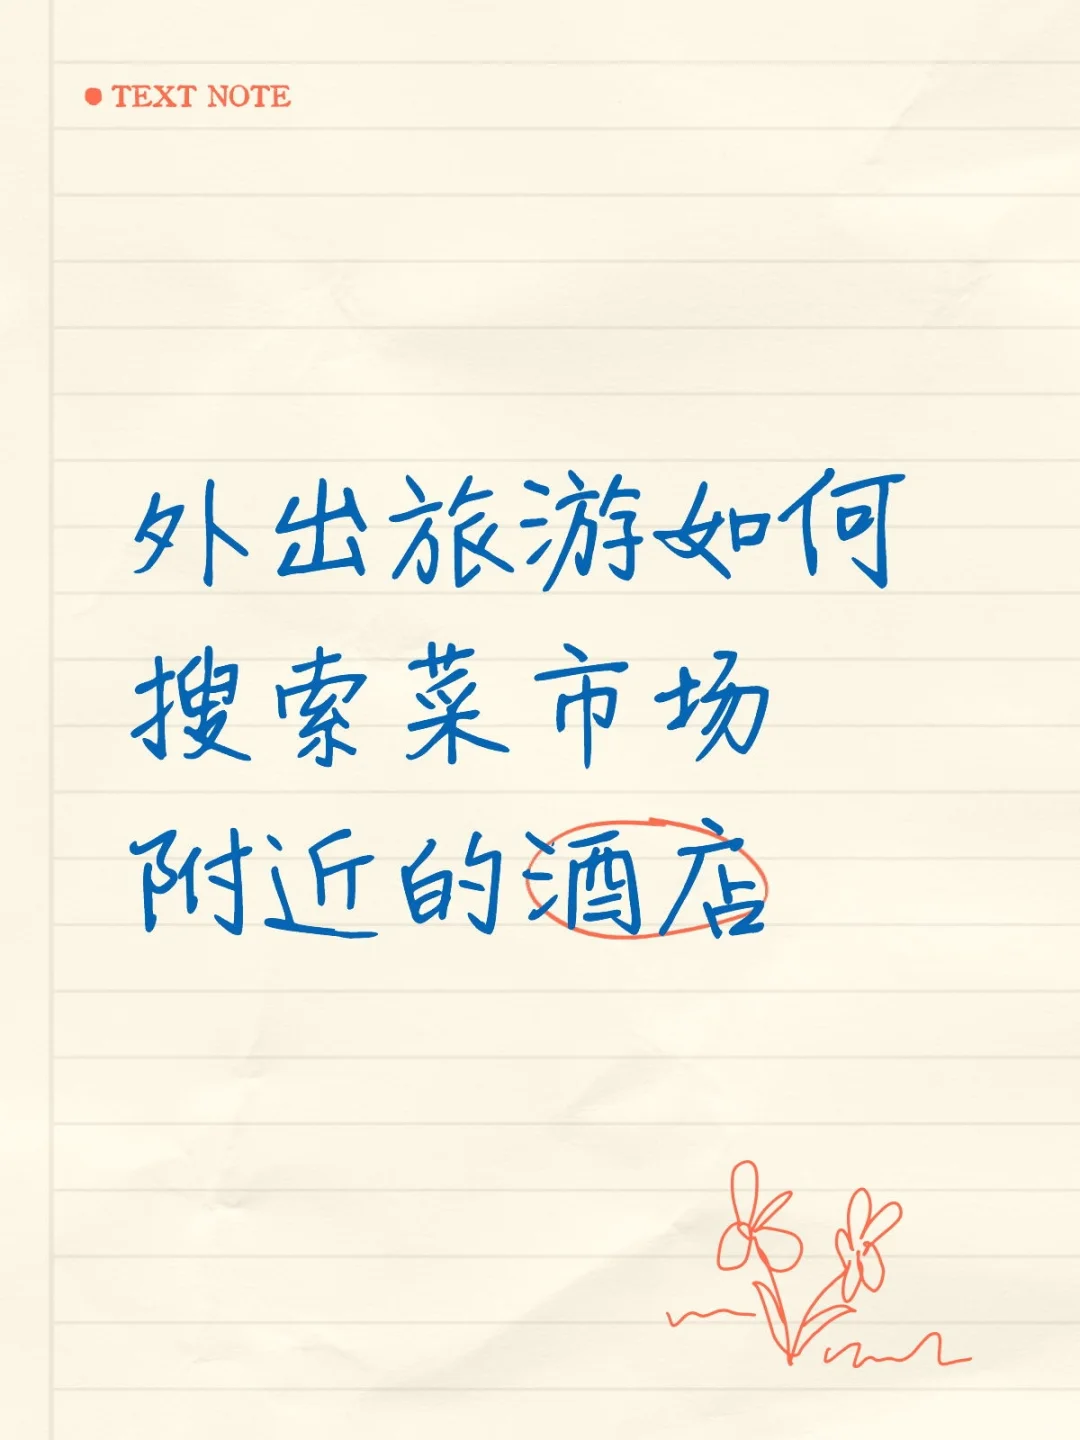 TEXT NOTE
外出旅游如何
搜索菜市场
附近的酒店